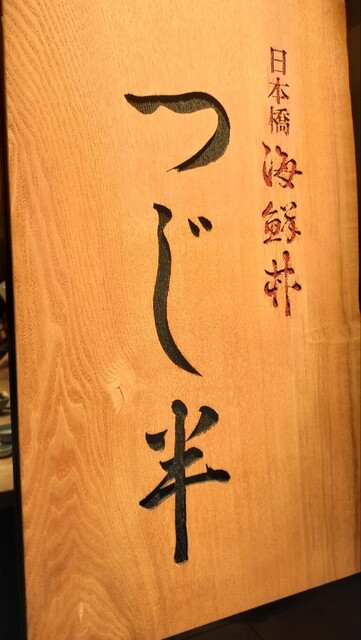 日本橋海鮮丼
つじ半